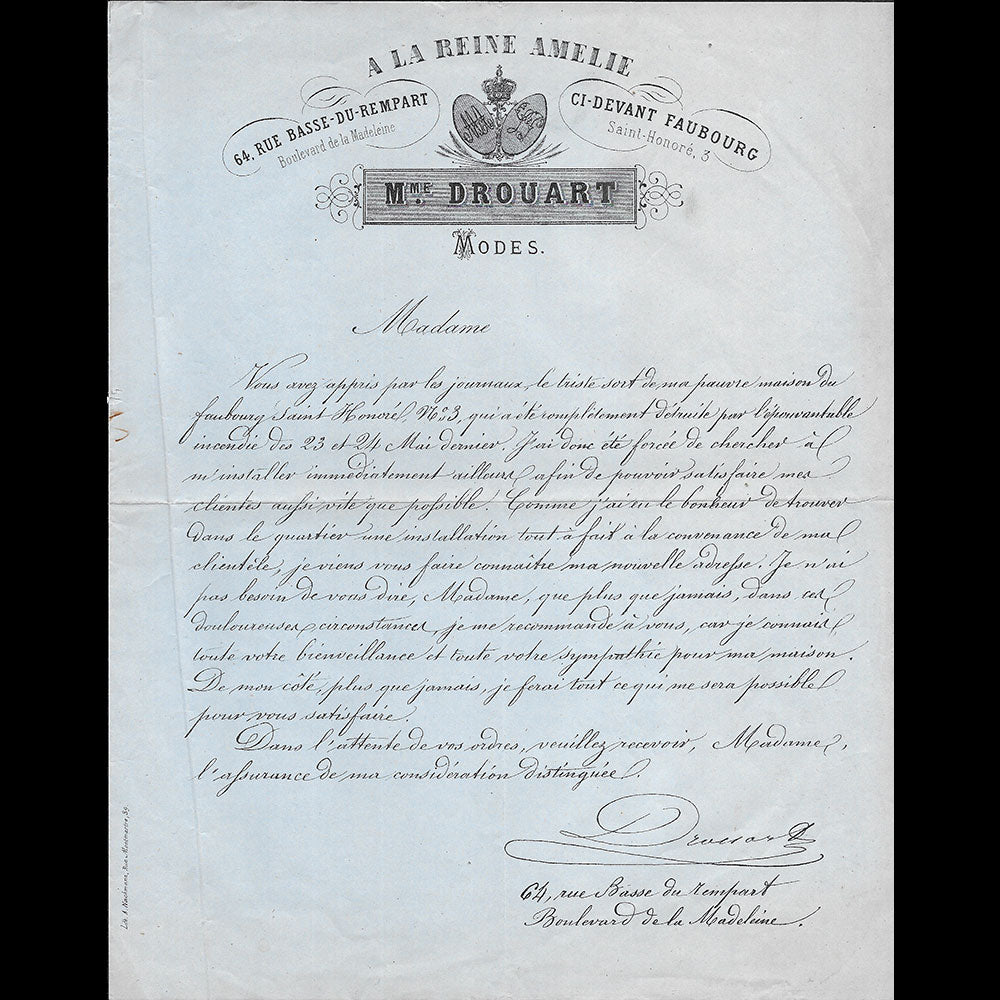 A LA REINE AMELIE
64, RUE BASSE-DU-REMPART
Boulevard de la Madeleine
CI-DEVANT FAUBOURG
Saint-Honoré, 3
MME. DROUART
MODES.
Madame
Vous avez appris par les journaux, le triste sort de ma pauvre maison du
faubourg Saint Honoré, No. 3, qui a été complètement détruite par l'épouvantable
incendie des 23 et 24 Mai dernier. J'ai donc été forcée de chercher à
m'installer immédiatement ailleurs afin de pouvoir satisfaire mes
clientes aussi vite que possible. Comme j'ai eu le bonheur de trouver
dans le quartier une installation tout à fait à la convenance de ma
clientèle, je viens vous faire connaître ma nouvelle adresse. Je n'ai
pas besoin de vous dire, Madame, que plus que jamais, dans ces
douloureuses circonstances, je me recommande à vous, car je connais
toute votre bienveillance et toute votre sympathie pour ma maison.
De mon côté, plus que jamais, je ferai tout ce qui me sera possible
pour vous satisfaire.
Dans l'attente de vos ordres, veuillez recevoir, Madame,
l'assurance de ma considération distinguée.
Drouart
64, rue Basse du rempart
Boulevard de la Madeleine.
Rue Montmartre, 39.